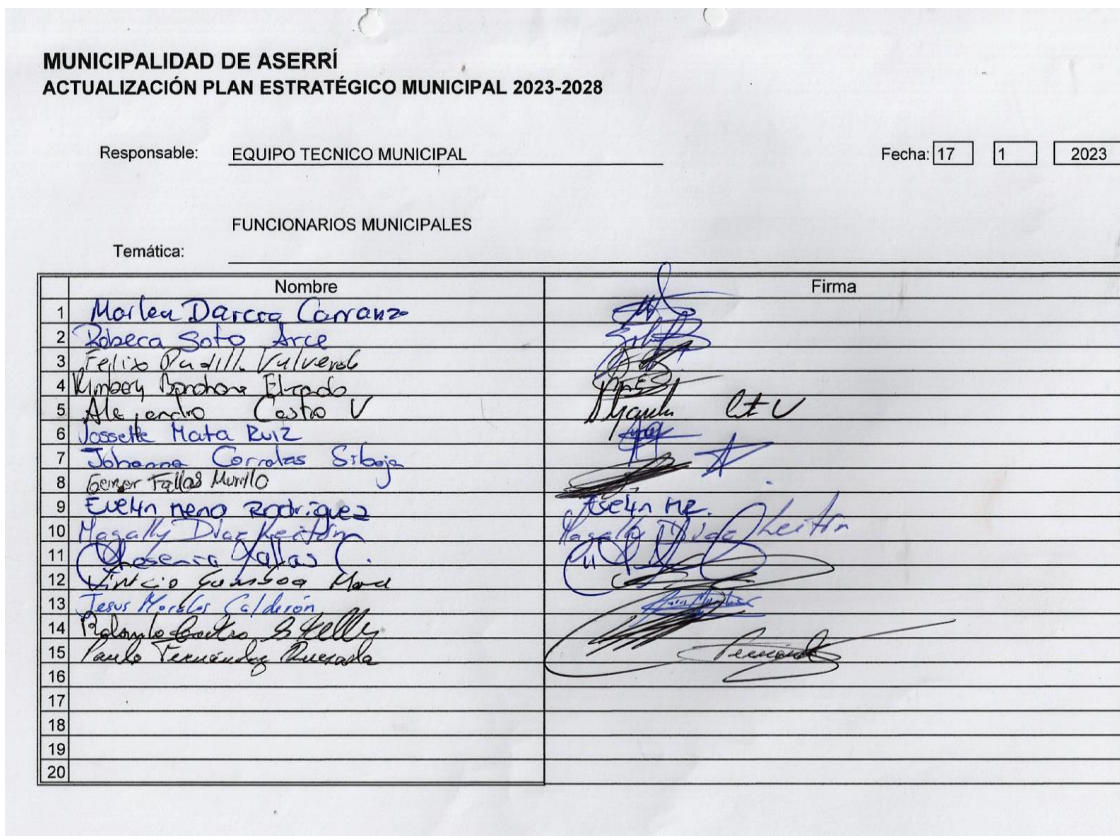 MUNICIPALIDAD DE ASERRÍ
ACTUALIZACIÓN PLAN ESTRATÉGICO MUNICIPAL 2023-2028
Responsable: EQUIPO TECNICO MUNICIPAL Fecha: 17 1 2023
FUNCIONARIOS MUNICIPALES
Temática:
Nombre Firma
1 Carranza
2 Soto Arce
3 Felix Padilla Valverde
4 Kimberly Barahona
5 Alejandro Castro V
6 Jossette Mata Ruiz
7 Johanna Corrales Siboja
8 Geiner Fallas Murillo
9 Evelin Meno Rodríguez Evelin MR.
10 Magally Díaz Leitón Magally Díaz Leitón
11 Fallas C.
12 Gamboa Mora
13 Jesus Morales Calderón
14 Rolando Castro
15 Paulo Fernández Quesada
16
17
18
19
20